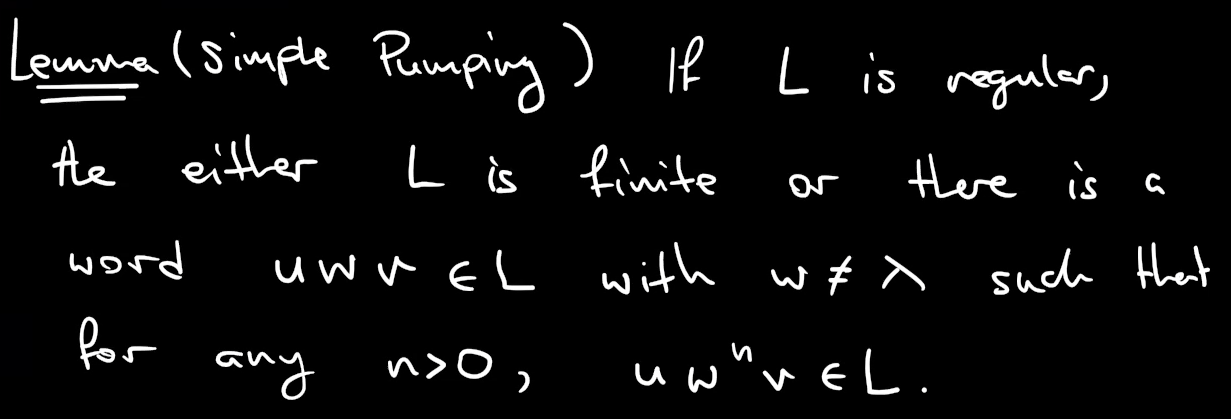 Lemma (Simple Pumping) If L is regular,
the either L is finite or there is a
word u w v ∈ L with w ≠ λ such that
for any n>0, u wⁿ v ∈ L.